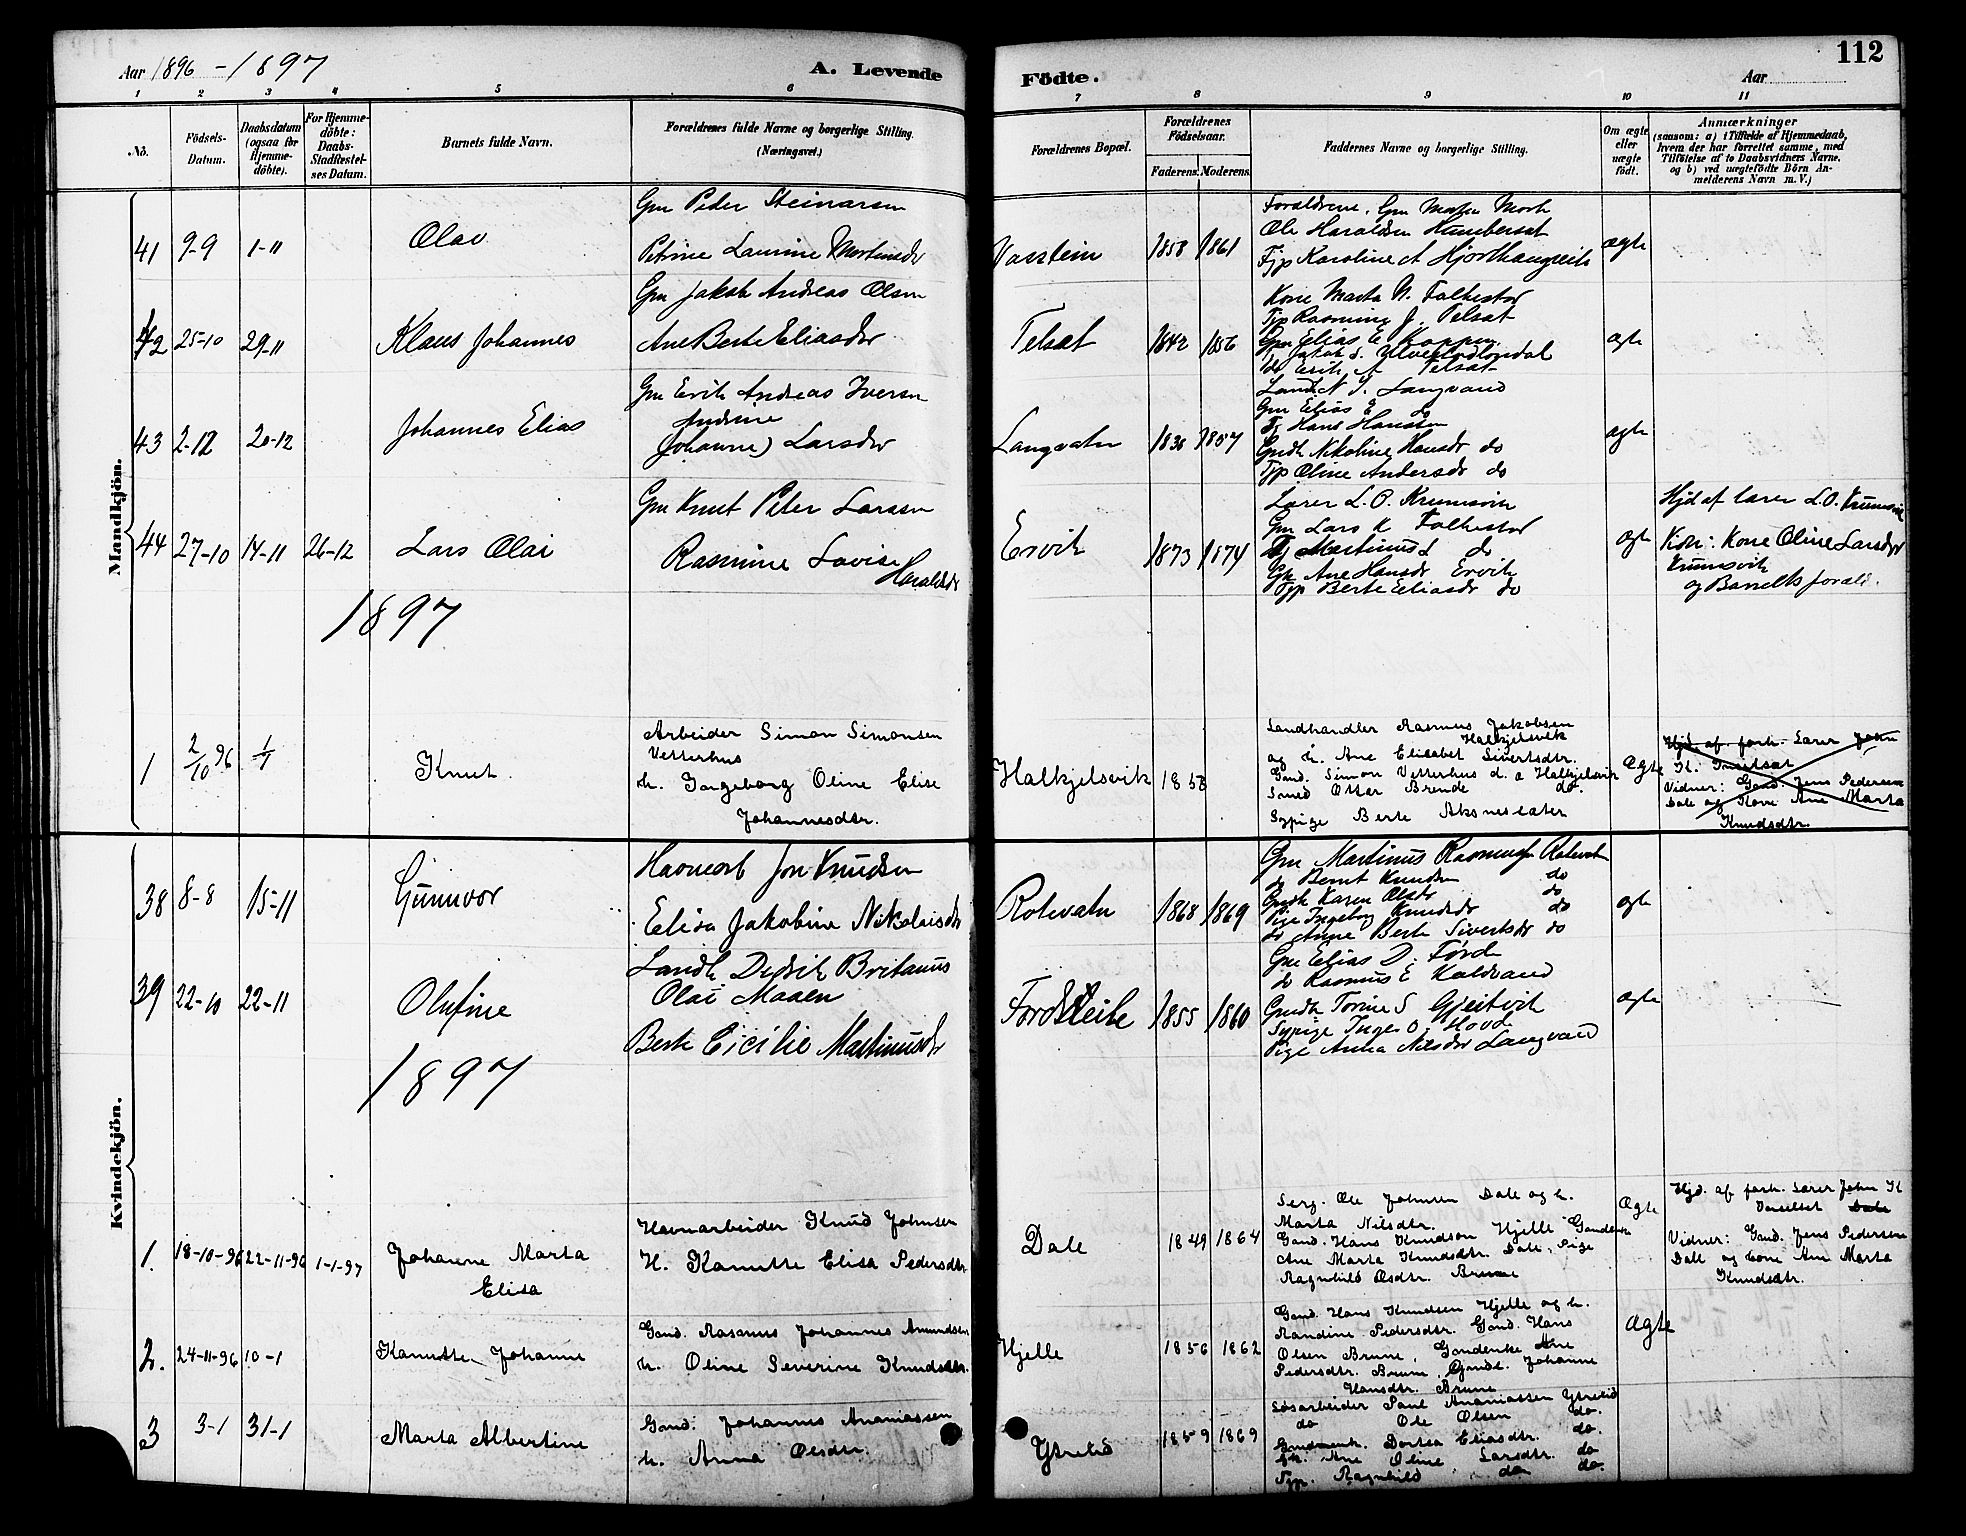 Aar 1896 - 1897
A. Levende
Födte.
Aar
112
1 2 3 4 5 6 7 8 9 10 11
No.
Födsels-
Datum.
Daabsdatum
(ogsaa för
Hjemme-
döbte).
For Hjemme-
döbte:
Daabs-
Stadfæstel-
ses Datum.
Barnets fulde Navn.
Forældrenes fulde Navne og borgerlige Stilling.
(Næringsvei.)
Forældrenes Bopæl.
Forældrenes
Födselsaar.
Faderens. Moderens.
Faddernes Navne og borgerlige Stilling.
Om ægte
eller
uægte
födt.
Anmærkninger
(saasom: a) i Tilfælde af Hjemmedaab,
hvem der har forrettet samme, med
Tilföielse af to Daabsvidners Navne,
og b) ved uægtefödte Börn An-
melderens Navn m. V.)
Mandkjön.
41 9-9 1-11
Olav
Gm Peder Steinarsen
Petrine Laurine Martinusdr
1858 1861
Forældrene, Gm
Ole Haraldsen
Karoline A
ægte
42 25-10 29-11
Klaus Johannes
Gm Jakob Andreas Olsen
Ane Berte Eliasdr
Telsæt
1842 1856
Kone Marta N. Folkestad
Rasmine J. Telsæt
Gm Elias E Koppen
do Jakob S.
do Erik A Telsæt
ægte
43 2-12 20-12
Johannes Elias
Gm Erik Andreas Iversen
Andrine
(Johanne) Larsdr
Langvatn
1857
N. J. Langvand
Gm Elias E do
Hans Hansen
Gmdk Nikoline Hansdr do
Oline Andersdr do
ægte
44 27-10 14-11 26-12
Lars Olai
Gm Knut Peter Larssen
Rasmine Lovise
Haraldsdr
Ervik
1873 1874
Lærer L. O. Krumsvik
Gm Lars K Folkestad
Martinus L do
Gk Ane Hansdr Ervik
Berte Eliasdr do
ægte
Hjd af lærer L.O. Krumsvik
Vidn: Kone Oline Larsdr
Krumsvik
og Barnets foræld.
1897
1 2/10 96 1/1
Knut
Arbeider Simon Simonsen
Vetterhus
h. Ingeborg Oline Elise
Johannesdtr.
Halkjelsvik 1858
Landhandler Rasmus Jakobsen
Halkjelsvik
og h. Ane Elisabet Sivertsdtr.
Gaad. Simon Vetterhus d. a Halkjelsvik
Smed Ottar Brende do.
Sypige Berte Aksnessæter
Ægte
Hjd. af forh. Lærer John
K.
Vidner: Gaad. Jens Pedersen
Dale og Kone Ane Marta
Knudsdtr.
Kvindekjön.
38 8-8 15-11
Gunnvor
Havnearb Jon Knudsen
Elisa Jakobine Nikolaisdr
Rotevatn
1868 1869
Gm Martinus Rasmussen Rotevatn
do Bernt Knudsen do
Gmdk Karen Olsdr do
Pige Ingeborg Knudsdr do
do Anne Berte Sivertsdr do
ægte
39 22-10 22-11
Olufine
Landh Didrik Britanus
Olai Maaen
Berte Cicilie Martinusdr
1855 1860
Gm Elias D. Førde
do Rasmus E Kaldvand
Gmdk Torine S Gjeitvik
Sypige Inger O. Hovde
Pige Anna Nilsdr Langvand
ægte
1897
1. 18-10-96 22-11-96 1-1-97
Johanne Marta
Elisa
Havnarbeider Knud Johnsen
H. Kanutte Elisa Pedersdtr.
Dale
1849 1864
Serg. Ole Johnsen Dale og h.
Marta Nilsdtr.
Gaad. Hans Knudsen Hjelle Gaardenke
Ane Marta Knudsdtr. Dale, Pige
Ragnhild Olsdtr. Brune
Ægte
Hjd. af forh. Lærer John K
Dale
Vidner: Gaad. Jens Pedersen
Dale og kone Ane Marta
Knudsdtr.
2. 24-11-96 10-1
Kanutte Johanne
Gaad. Rasmus Johannes Amundsen
h. Oline Severine Knudsdtr.
Hjelle
1856 1862
Gaad. Hans Knudsen Hjelle og h.
Randine Pedersdtr. Gaad. Hans
Olsen Brune, Gaardenke Ane
Pedersdtr. Brune, Gmdk. Johanne
Hansdtr. Brune
Ægte
3 3-1 31-1
Marta Albertine
Gaad. Johannes Ananiassen
h. Anna Olsdtr.
Ytrelid
1859 1869
Løsarbeider Paul Ananiassen Ytrelid
do Ole Olsen do.
Dortea Eliasdtr. do.
Gk. Ane Oline Larsdtr. do
Ragnhild do do.